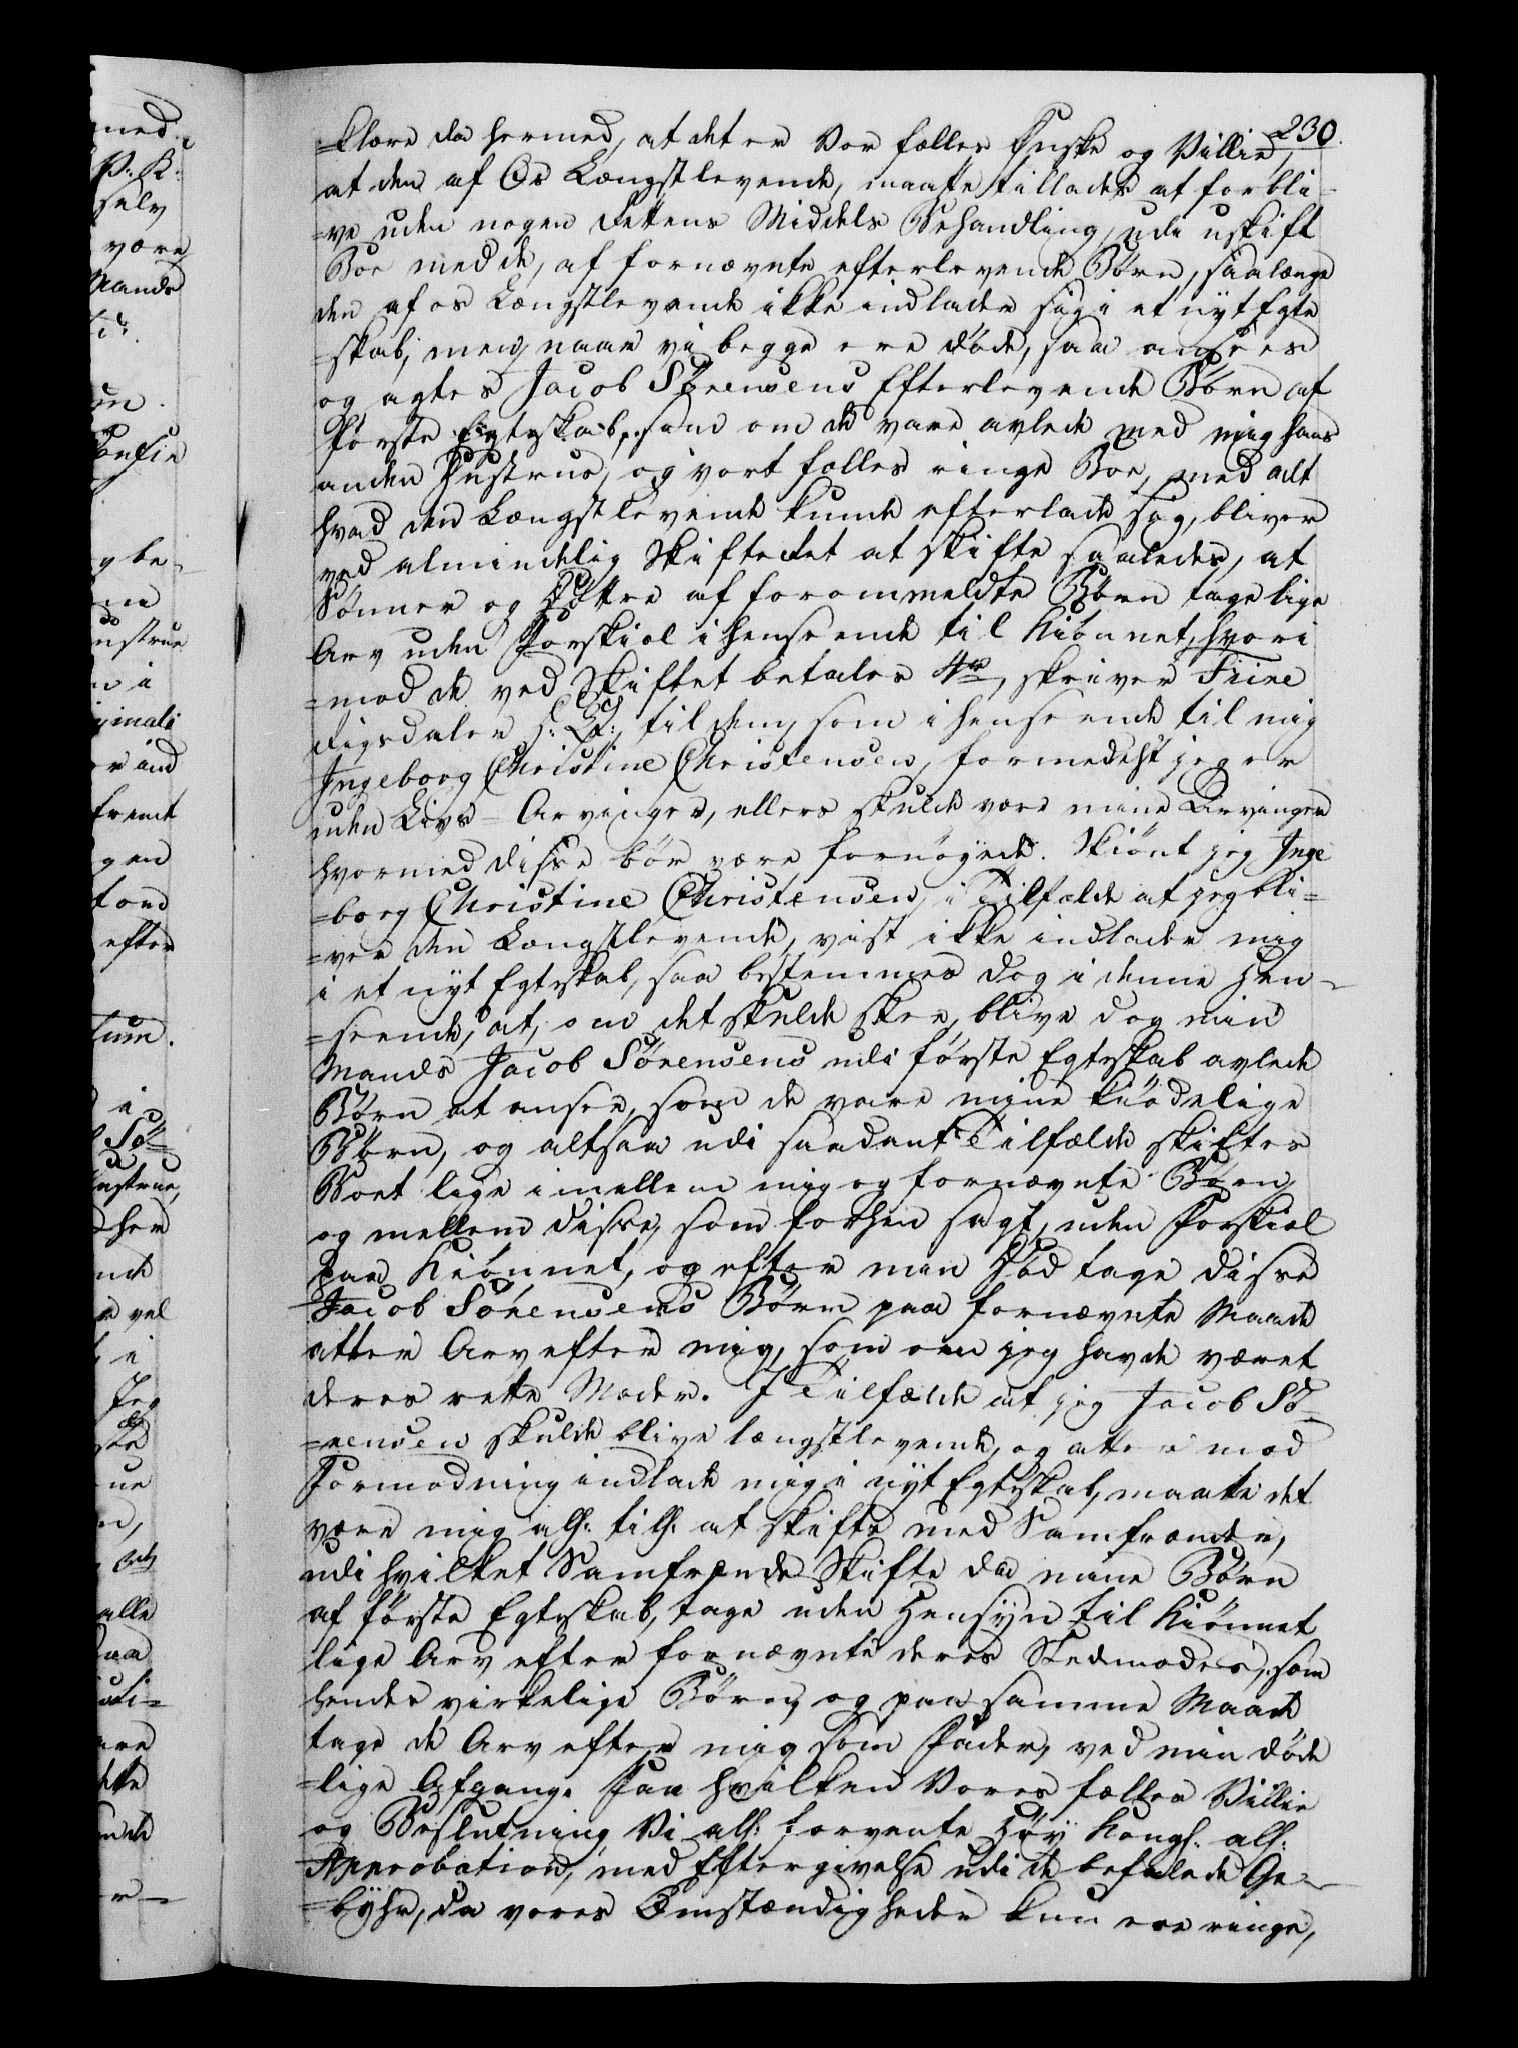 230.
=klære da hermed, at det er Vor fælles Ønske og Villie,
at den af Os Længstlevende, maatte tillades at forbli-
=ve uden nogen Rettens Middels Behandling, udi uskift
Boe med de, af fornævnte efterlevende Børn, saalænge
den af os Længstlevende ikke indlader sig i et nyt Egte
=skab, men, naar vi begge ere døde, saa ansees
og agtes Jacob Sørensens Efterlevende Børn af
første Egteskab, som om de vare avlede med mig hans
anden Hustrue, og vort fælles ringe Boe, med alt
hvad den Længstlevende kunde efterlade sig, bliver
ved almindelig Skifteret at skifte saaledes, at
Sønner og Døttre af forommeldte Børn tage lige
Arv uden Forskiel i henseende til Kiønnet, hvori
=mod de ved Skiftet betaler 4re, skriver Fiire
Rigsdaler D: C:, til dem, som i henseende til mig
Ingeborg Christine Christensen, formedelst jeg er
uden Livs-Arvinger, ellers skulde være mine Arvinger
hvormed disse bør være fornøyede. Skiønt jeg Inge
=borg Christine Christensen, i Tilfælde at jeg bli=
=ver den Længstlevende, vist ikke indlader mig
i et nyt Egteskab, saa bestemmes dog i denne Hen-
=seende, at, om det skulde skee, blive dog min
Mands Jacob Sørensens udi første Egteskab avlede
Børn at ansee, som de vare mine kiødelige
Børn, og altsaa udi saadant Tilfælde skiftes
Boet lige imellem mig og fornævnte Børn,
og mellem disse, som forhen sagt, uden Forskiel
paa Kiønnet, og efter min Død tage disse
Jacob Sørensens Børn paa fornævnte Maade
atter Arv efter mig, som om jeg havde været
deres rette Moder. I Tilfælde at jeg Jacob Sø-
=rensen skulde blive længstlevende, og atter imod
Formodning indlade mig i nyt Egteskab, maatte det
være mig all: till: at skifte med Samfrænder,
udi hvilket Samfrænde Skifte da mine Børn
af første Egteskab, tage uden Hensyn til Kiønnet
lige Arv efter fornævnte deres Stedmoder, som
hendes virkelige Børn, og paa samme Maade
tage de Arv efter mig som Fader, ved min døde
=lige Afgang. Paa hvilken Vores fælles Villie
og Beslutning Vi all: forvente Høy Kongl: all:
Approbation, med Eftergivelse udi de befalede Ge-
=byhr, da vores Omstændigheder kun ere ringe,